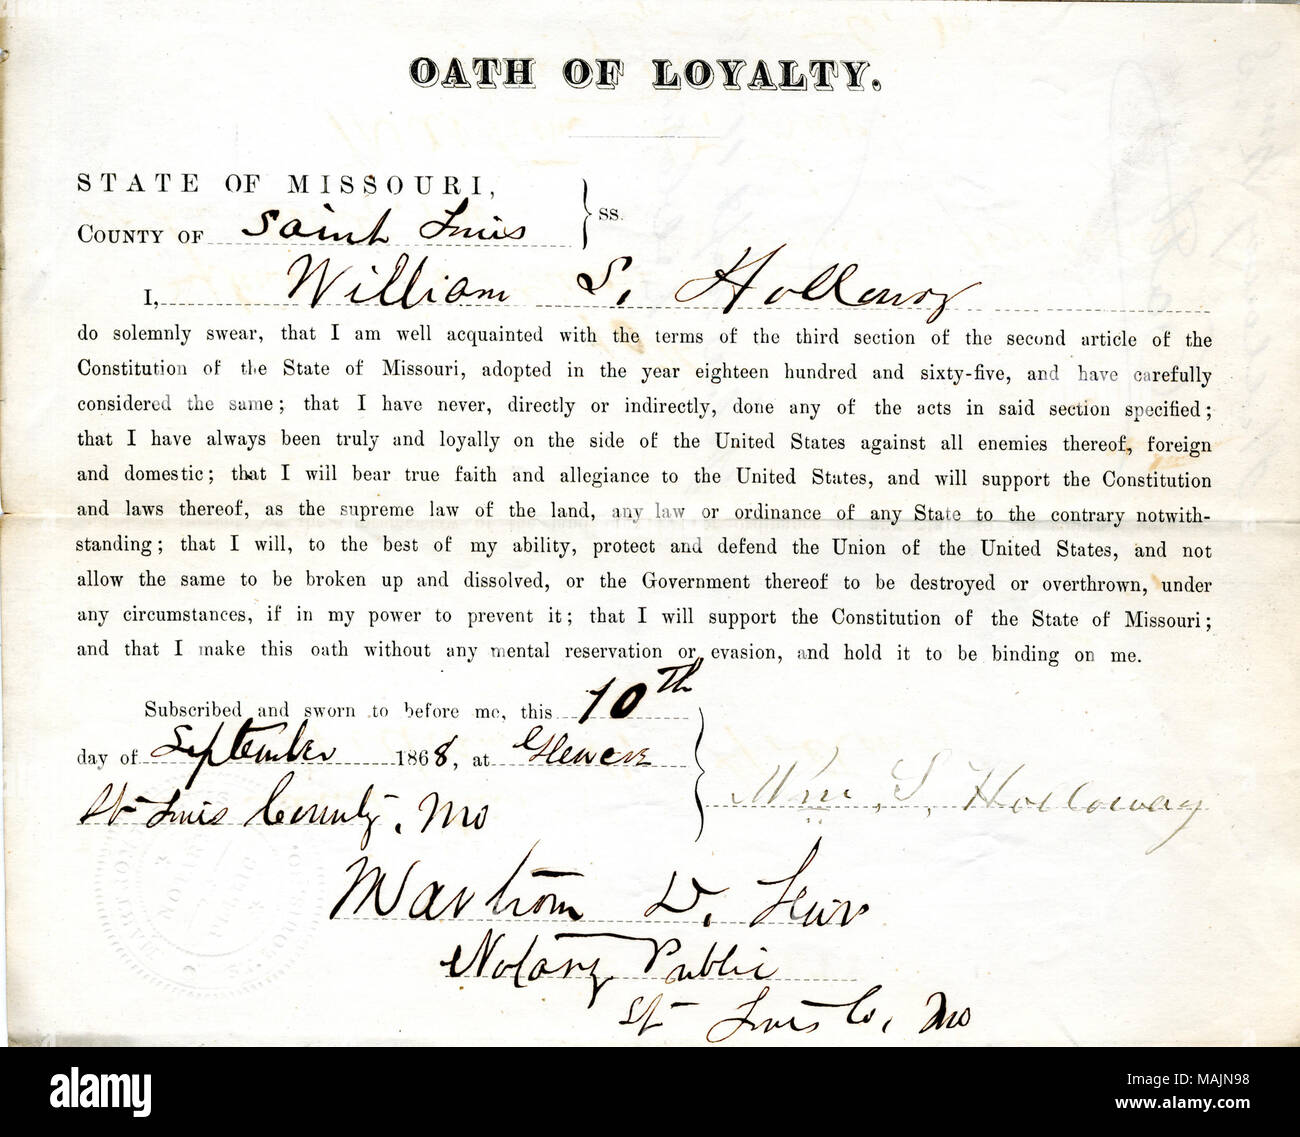 OATH OF LOYALTY.
STATE OF MISSOURI,
COUNTY OF Saint Louis } ss.
I, William S. Holloway
do solemnly swear, that I am well acquainted with the terms of the third section of the second article of the
Constitution of the State of Missouri, adopted in the year eighteen hundred and sixty-five, and have carefully
considered the same; that I have never, directly or indirectly, done any of the acts in said section specified;
that I have always been truly and loyally on the side of the United States against all enemies thereof, foreign
and domestic; that I will bear true faith and allegiance to the United States, and will support the Constitution
and laws thereof, as the supreme law of the land, any law or ordinance of any State to the contrary notwith-
standing; that I will, to the best of my ability, protect and defend the Union of the United States, and not
allow the same to be broken up and dissolved, or the Government thereof to be destroyed or overthrown, under
any circumstances, if in my power to prevent it; that I will support the Constitution of the State of Missouri;
and that I make this oath without any mental reservation or evasion, and hold it to be binding on me.
Subscribed and sworn to before me, this 10th
day of September 1868, at
St Louis County, Mo
Wm. S. Holloway
D.
Notary Public
St Louis Co, Mo
NOTARY PUBLIC
ST. LOUIS CO.
alamy
Image ID: MAJN98
www.alamy.com